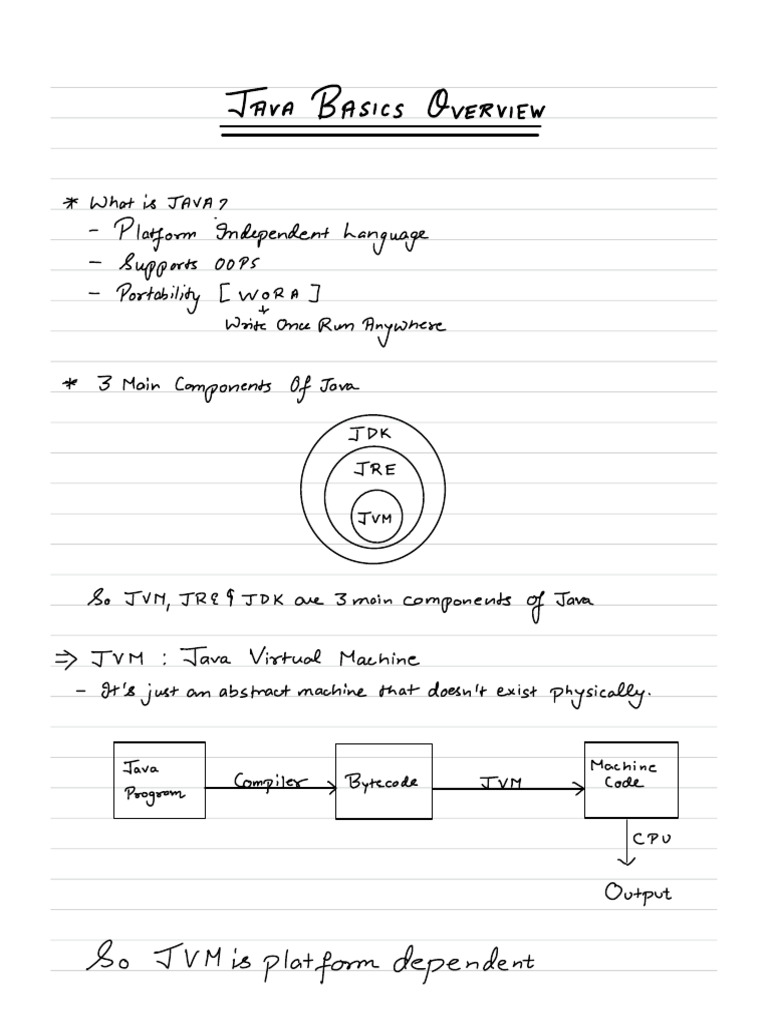 JAVA BASICS OVERVIEW
* What is JAVA?
- Platform Independent Language
- Supports OOPS
- Portability [WORA]
Write Once Run Anywhere
* 3 Main Components Of Java
JDK
JRE
JVM
So JVM, JRE & JDK are 3 main components of Java
⇒ JVM : Java Virtual Machine
- It's just an abstract machine that doesn't exist physically.
Java
Program
Compiler
Bytecode
JVM
Machine
Code
CPU
Output
So JVM is platform dependent